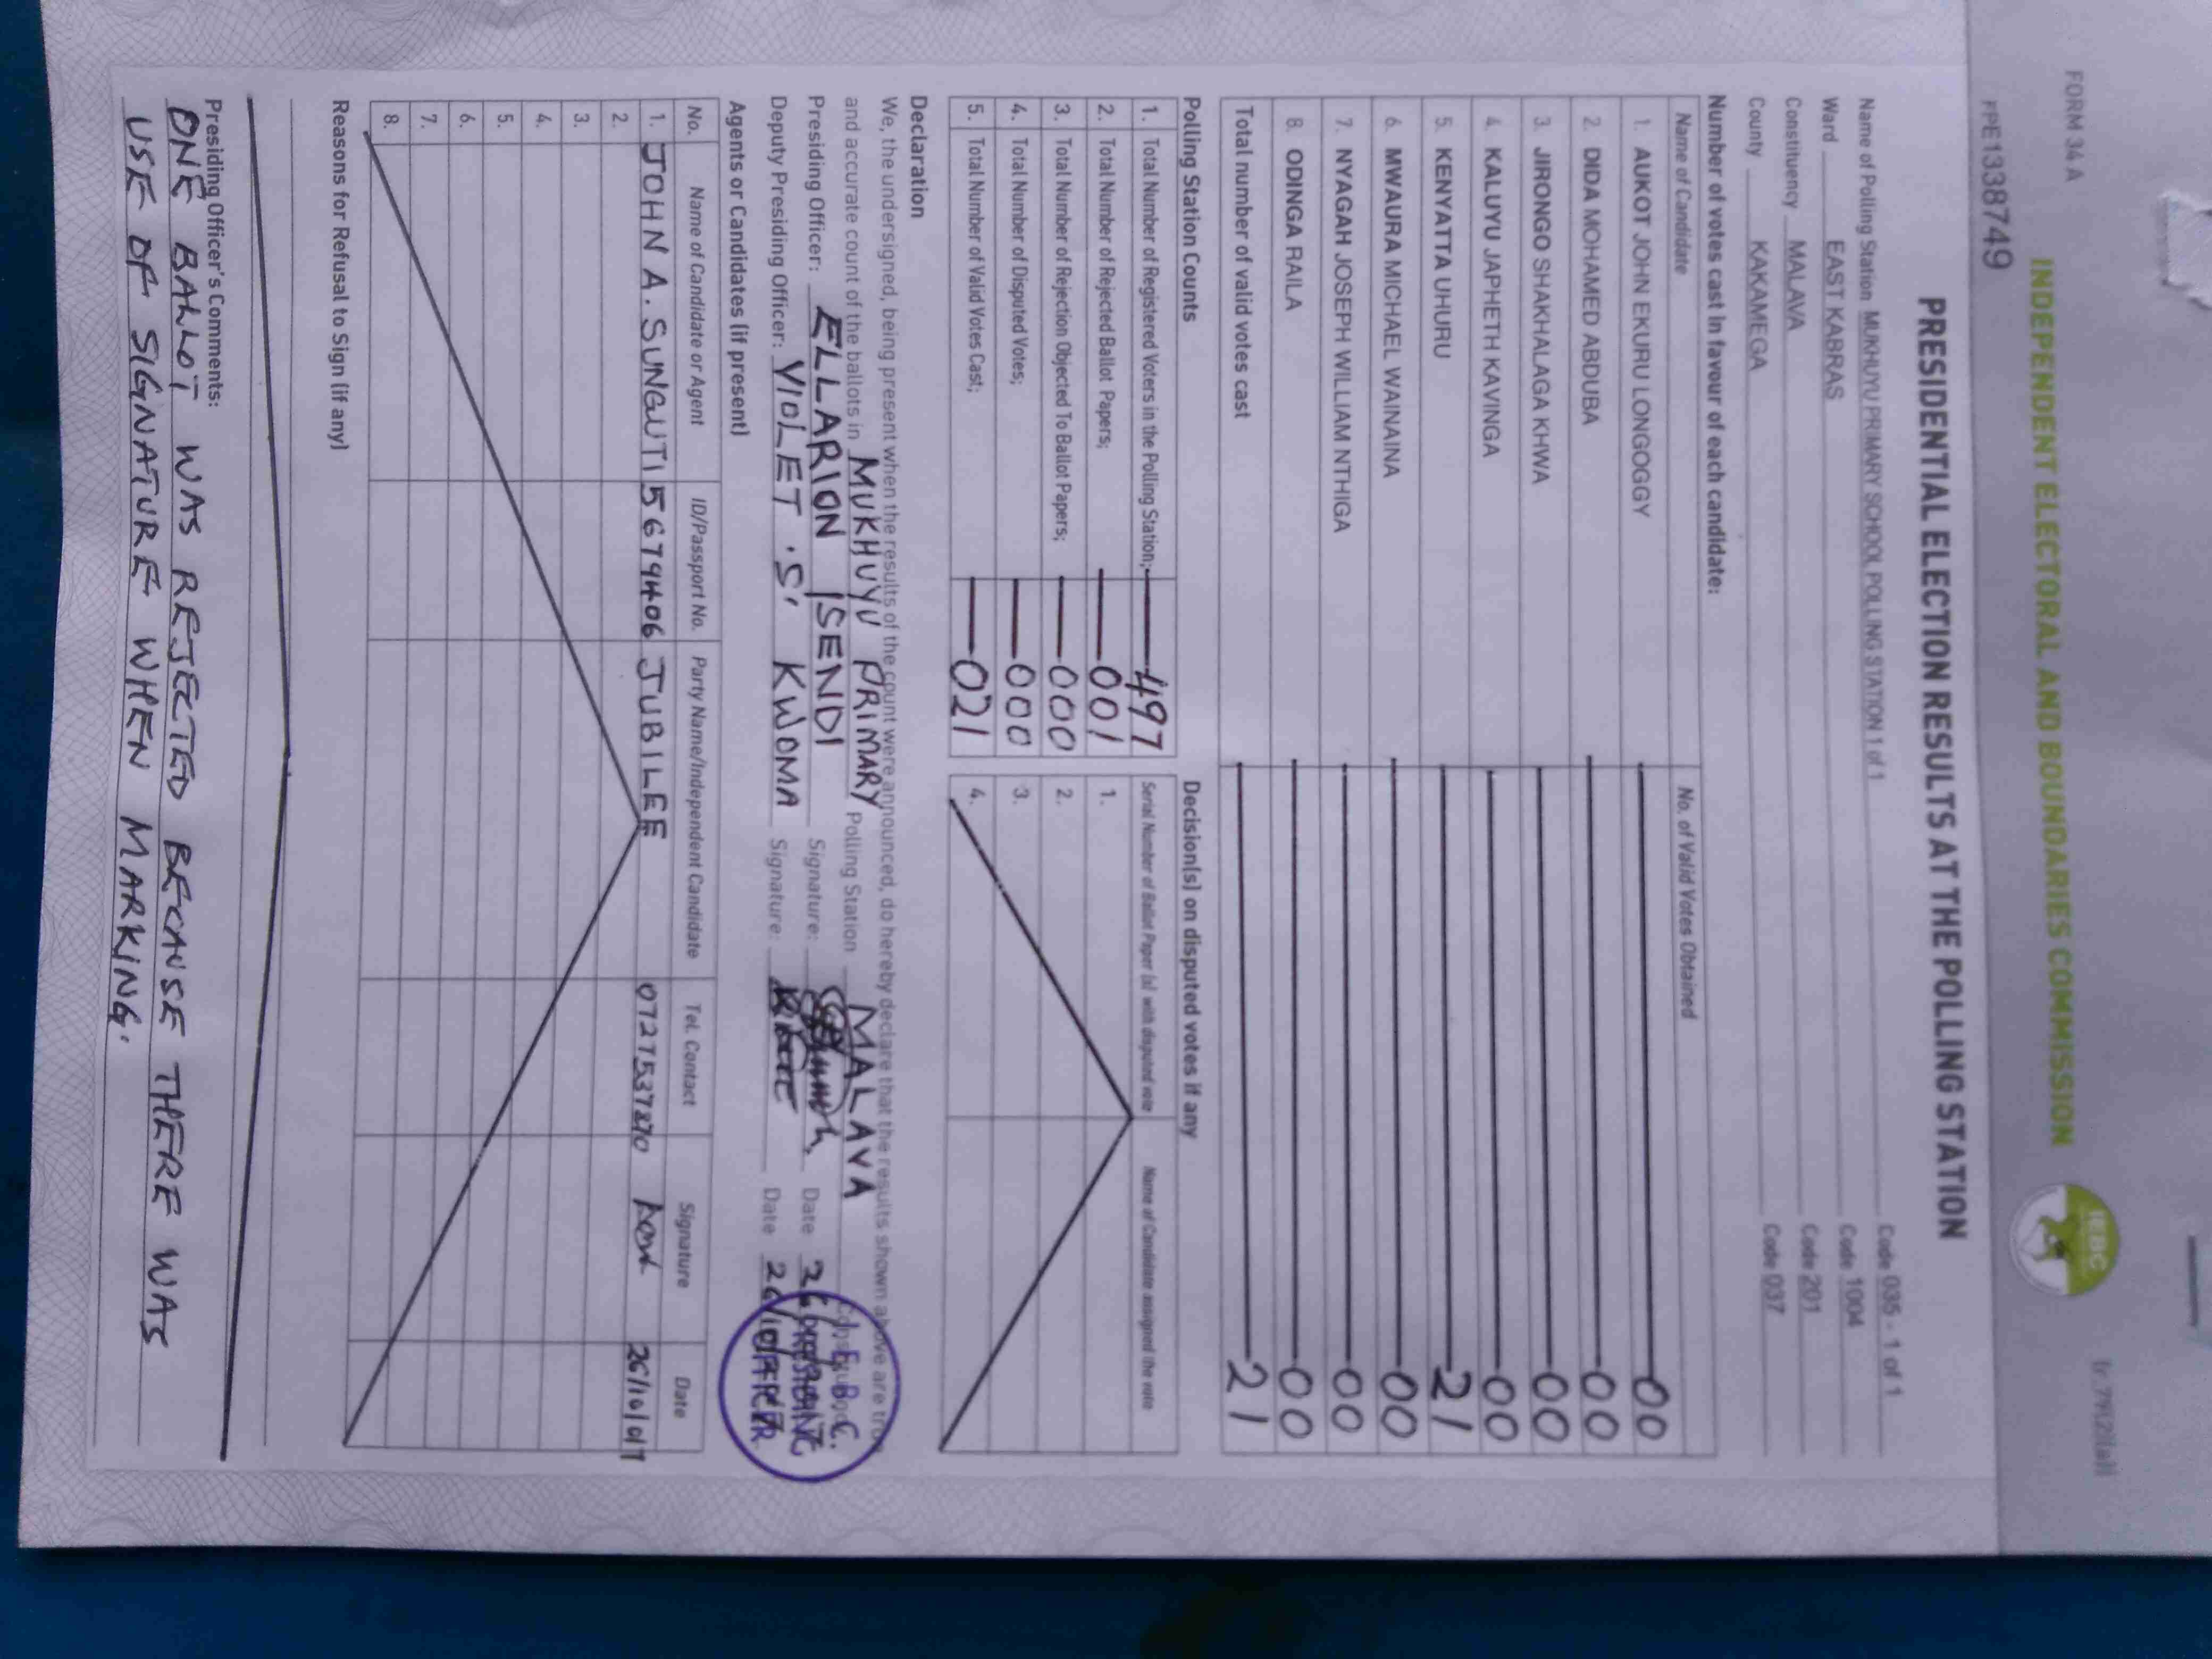 FORM 34 A
INDEPENDENT ELECTORAL AND BOUNDARIES COMMISSION
IEBC
FPE1338749
PRESIDENTIAL ELECTION RESULTS AT THE POLLING STATION
Name of Polling Station MUKHUYU PRIMARY SCHOOL POLLING STATION 1 of 1 Code 035 - 1 of 1
Ward EAST KABRAS Code 1004
Constituency MALAVA Code 201
County KAKAMEGA Code 037
Number of votes cast in favour of each candidate:
Name of Candidate No. of Valid Votes Obtained
1. AUKOT JOHN EKURU LONGOGGY 00
2. DIDA MOHAMED ABDUBA 00
3. JIRONGO SHAKHALAGA KHWA 00
4. KALUYU JAPHETH KAVINGA 00
5. KENYATTA UHURU 21
6. MWAURA MICHAEL WAINAINA 00
7. NYAGAH JOSEPH WILLIAM NTHIGA 00
8. ODINGA RAILA 00
Total number of valid votes cast 21
Polling Station Counts Decision(s) on disputed votes if any
1. Total Number of Registered Voters in the Polling Station; 497
2. Total Number of Rejected Ballot Papers; 001
3. Total Number of Rejection Objected To Ballot Papers; 000
4. Total Number of Disputed Votes; 000
5. Total Number of Valid Votes Cast; 021
Serial Number of Ballot Paper (s) with disputed vote Name of Candidate assigned the vote
1.
2.
3.
4.
Declaration
We, the undersigned, being present when the results of the count were announced, do hereby declare that the results shown above are true
and accurate count of the ballots in MUKHUYU PRIMARY Polling Station MALAVA
Presiding Officer: ELLARION ISENDI Signature: Date
Deputy Presiding Officer: VIOLET .S. KWOMA Signature: Date
I.E.B.C.
PRESIDING
OFFICER
Agents or Candidates (if present)
No. Name of Candidate or Agent ID/Passport No. Party Name/Independent Candidate Tel. Contact Signature Date
1. JOHN A. SUNGUTI 5679406 JUBILEE 0727537870
2.
3.
4.
5.
6.
7.
8.
Reasons for Refusal to Sign (if any)
Presiding Officer's Comments:
ONE BALLOT WAS REJECTED BECAUSE THERE WAS
USE OF SIGNATURE WHEN MARKING.